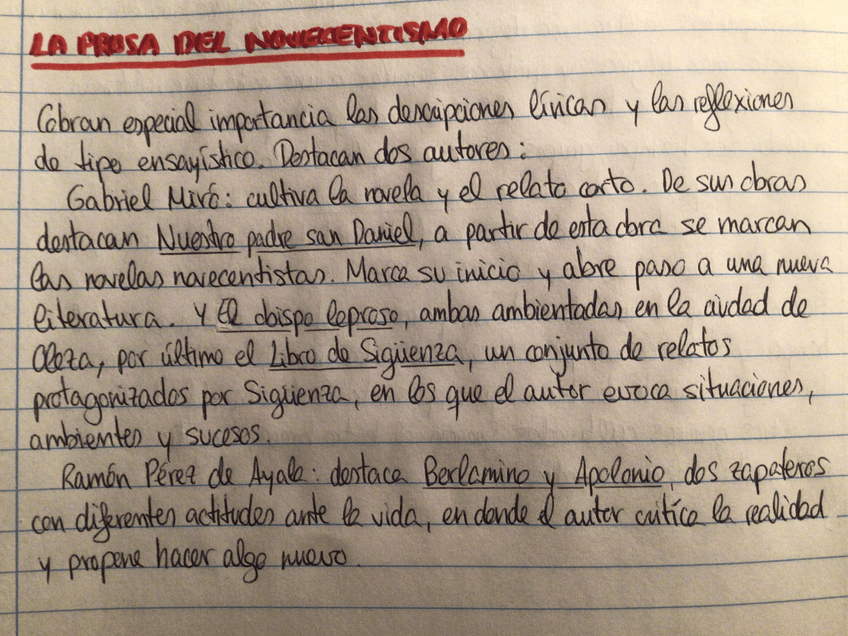 LA PROSA DEL NOVECENTISMO
Cobran especial importancia las descripciones líricas y las reflexiones
de tipo ensayístico. Destacan dos autores:
Gabriel Miró: cultiva la novela y el relato corto. De sus obras
destacan Nuestro padre san Daniel, a partir de esta obra se marcan
las novelas novecentistas. Marca su inicio y abre paso a una nueva
literatura. Y El obispo leproso, ambas ambientadas en la ciudad de
Oleza, por último el Libro de Sigüenza, un conjunto de relatos
protagonizados por Sigüenza, en los que el autor evoca situaciones,
ambientes y sucesos.
Ramón Pérez de Ayala: destaca Berlamino y Apolonio, dos zapateros
con diferentes actitudes ante la vida, en donde el autor critica la realidad
y propone hacer algo nuevo.